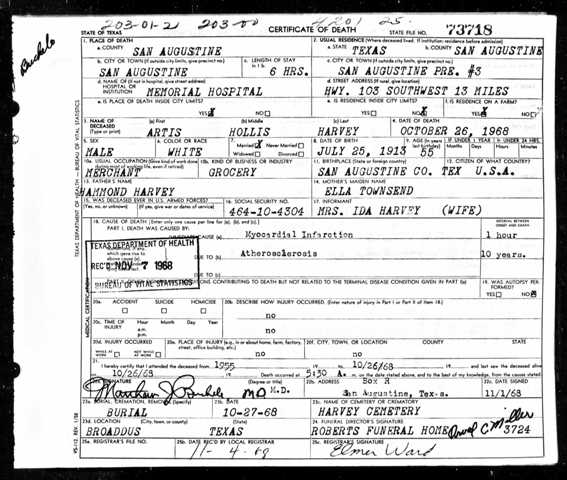 203-01-2 203-00 4201 25.
STATE OF TEXAS CERTIFICATE OF DEATH STATE FILE NO. 73718
1. PLACE OF DEATH 2. USUAL RESIDENCE (Where deceased lived. If institution: residence before admission)
a. COUNTY SAN AUGUSTINE a. STATE TEXAS b. COUNTY SAN AUGUSTINE
b. CITY OR TOWN (If outside city limits, give precinct no.) c. LENGTH OF STAY in 1 b. c. CITY OR TOWN (If outside city limits, give precinct no.)
SAN AUGUSTINE 6 HRS. SAN AUGUSTINE PRE. #3
d. NAME OF (If not in hospital, give street address) HOSPITAL OR INSTITUTION d. STREET ADDRESS (If rural, give location)
MEMORIAL HOSPITAL HWY. 103 SOUTHWEST 13 MILES
e. IS PLACE OF DEATH INSIDE CITY LIMITS? e. IS RESIDENCE INSIDE CITY LIMITS? f. IS RESIDENCE ON A FARM?
YES NO YES NO YES NO
3. NAME OF DECEASED (Type or print) (a) First (b) Middle (c) Last 4. DATE OF DEATH
ARTIS HOLLIS HARVEY OCTOBER 26, 1968
5. SEX 6. COLOR OR RACE 7. Married Never Married 8. DATE OF BIRTH 9. AGE IF UNDER 1 YEAR IF UNDER 24 HRS.
MALE WHITE Widowed Divorced JULY 25, 1913 55 Months Days Hours Minutes
10a. USUAL OCCUPATION (Give kind of work done 10b. KIND OF BUSINESS OR INDUSTRY 11. BIRTHPLACE (State or foreign country) 12. CITIZEN OF WHAT COUNTRY?
MERCHANT GROCERY SAN AUGUSTINE CO. TEX U.S.A.
13. FATHER'S NAME 14. MOTHER'S MAIDEN NAME
HAMMOND HARVEY ELLA TOWNSEND
15. WAS DECEASED EVER IN U.S. ARMED FORCES? 16. SOCIAL SECURITY NO. 17. INFORMANT
(Yes, no, or unknown) (If yes, give war or dates of service) 464-10-4304 MRS. IDA HARVEY (WIFE)
18. CAUSE OF DEATH [Enter only one cause per line for (a), (b), and (c).] INTERVAL BETWEEN ONSET AND DEATH
PART I. DEATH WAS CAUSED BY:
Myocardial Infarction 1 hour
TEXAS DEPARTMENT OF HEALTH
DUE TO (b) Atherosclerosis 10 years.
REC'D NOV 7 1968
DUE TO (c)
BUREAU OF VITAL STATISTICS
CONDITIONS CONTRIBUTING TO DEATH BUT NOT RELATED TO THE TERMINAL DISEASE CONDITION GIVEN IN PART I(a) 19. WAS AUTOPSY PERFORMED?
YES NO
20a. ACCIDENT SUICIDE HOMICIDE 20b. DESCRIBE HOW INJURY OCCURRED. (Enter nature of injury in Part I or Part II of item 18.)
no
20c. TIME OF INJURY Hour Month Day Year
a.m. p.m. no
20d. INJURY OCCURRED 20e. PLACE OF INJURY (e.g., in or about home, farm, factory, street, office building, etc.) 20f. CITY, TOWN, OR LOCATION COUNTY STATE
WHILE AT WORK NOT WHILE AT WORK no no
21. I hereby certify that I attended the deceased from 1955 to 10/26/68 and last saw the deceased alive
on 10/26/68 Death occurred at 5:30 A. m. on the date stated above, and to the best of my knowledge, from the causes stated
22a. SIGNATURE (Degree or title) 22b. ADDRESS Box R 22c. DATE SIGNED
MD M.D. San Augustine, Texas 11/1/68
23a. BURIAL, CREMATION, REMOVAL (Specify) 23b. DATE 23c. NAME OF CEMETERY OR CREMATORY
BURIAL 10-27-68 HARVEY CEMETERY
23d. LOCATION (City, town, or county) (State) 24. FUNERAL DIRECTOR'S SIGNATURE
BROADDUS TEXAS ROBERTS FUNERAL HOME C Miller 3724
25a. REGISTRAR'S FILE NO. 25b. DATE REC'D BY LOCAL REGISTRAR 25c. REGISTRAR'S SIGNATURE
11-4-68 Elmer Ward
TEXAS DEPARTMENT OF HEALTH - BUREAU OF VITAL STATISTICS
MEDICAL CERTIFICATION
VS-112 REV. 1/58